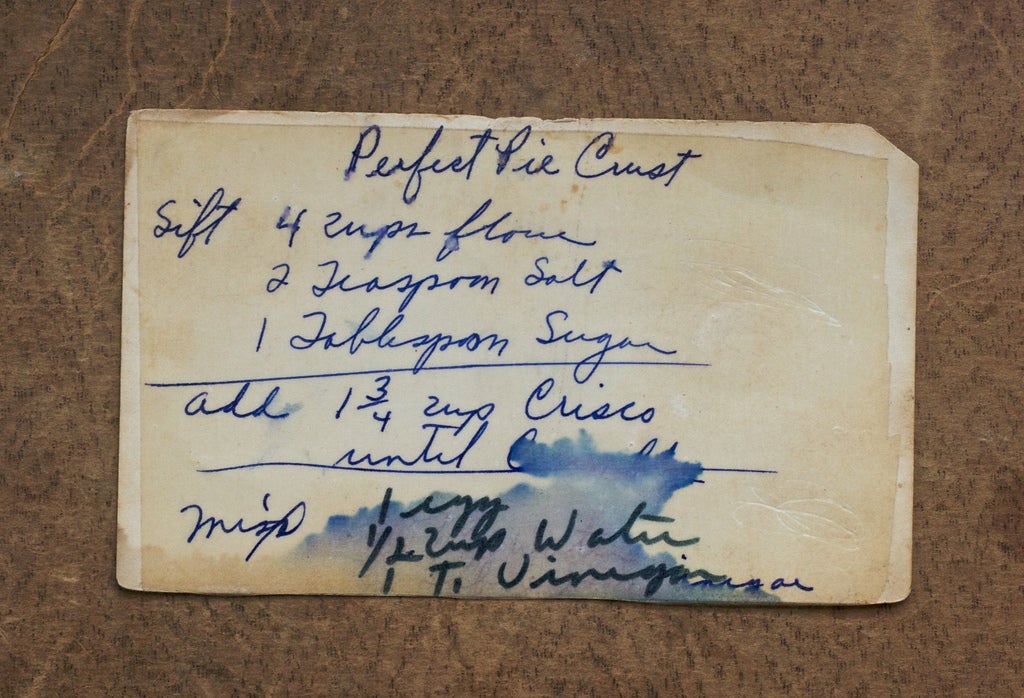 Perfect Pie Crust
Sift 4 cups flour
2 Teaspoon Salt
1 Tablespoon Sugar
add 1 3/4 cup Crisco
until
Mix 1 egg
1/2 cup Water
1 T. Vinegar